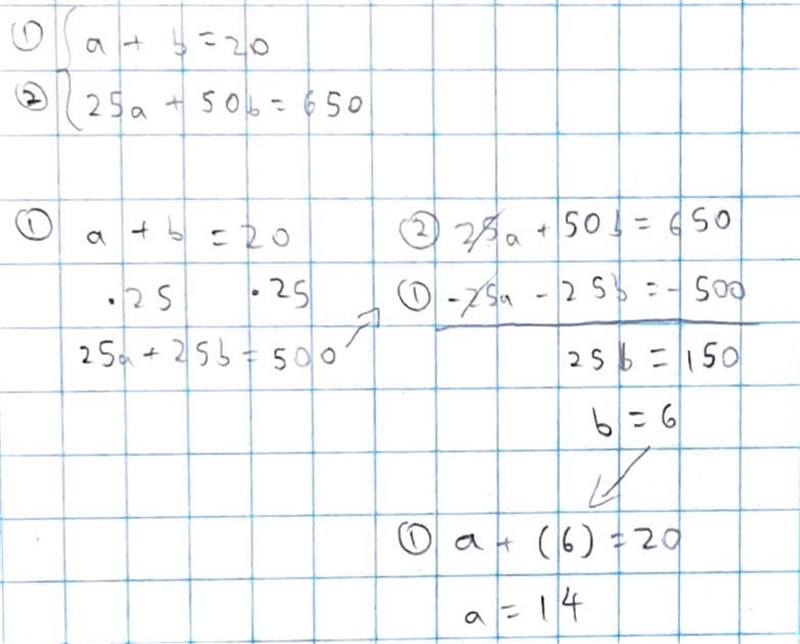 ① { a + b = 20
② { 25a + 50b = 650
① a + b = 20
·25 ·25
25a + 25b = 500
② 25a + 50b = 650
① -25a - 25b = -500
25b = 150
b = 6
① a + (6) = 20
a = 14